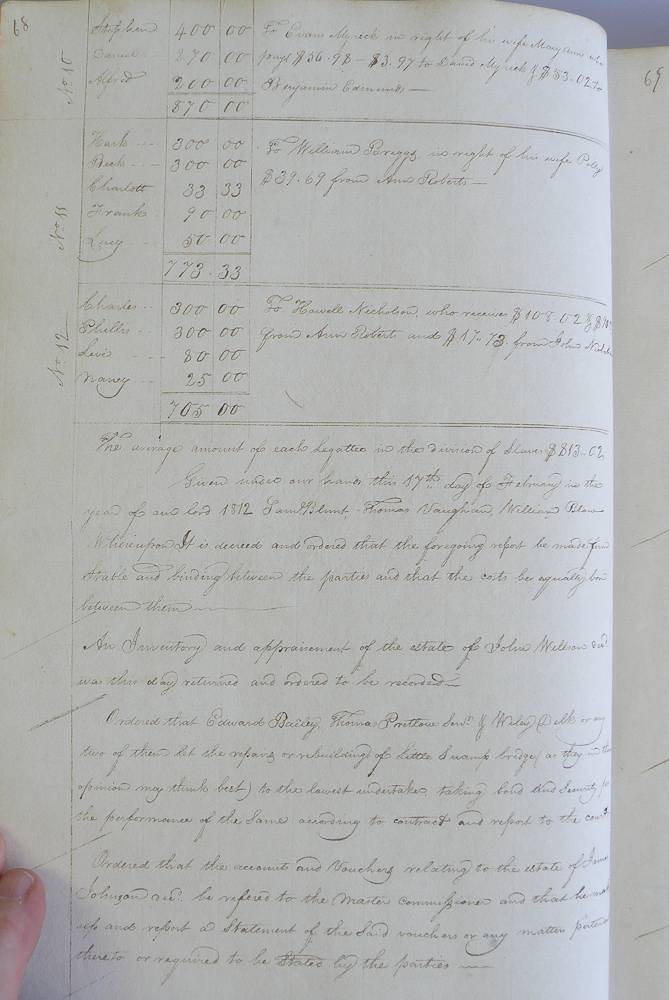 68
69
No 10
Stephen 400 00 To Evans Myrick in right of his wife Mary Ann who
Daniel 270 00 pays $56.98 - $3.97 to David Myrick & $53.02 to
Alfred 200 00 Benjamin Edmunds
870 00
No 11
Hark 300 00 To William Briggs in right of his wife Polly
Beck 300 00 $39.69 from Ann Roberts
Charlott 33 33
Frank 90 00
Lucy 50 00
773.33
No 12
Charles 300 00 To Howell Nicholson, who receives $108.02 &
Phillis 300 00 from Ann Roberts and $17.73 from John
Levi 80 00
Nancy 25 00
705 00
The average amount of each Legattee in the division of Slaves $813.02
Given under our hands this 17th day of February in the
year of our lord 1812 Saml Blunt, Thomas Vaughan, William Blow
Whereupon It is decreed and ordered that the foregoing report be made firm
Stable and binding between the parties and that the costs be equally
between them
An Inventory and appraisement of the estate of John Willson
was this day returned and ordered to be recorded
Ordered that Edward Bailey, Thomas Pretlow Senr & Wiley Delk or any
two of them let the repairs or rebuilding of Little Swamp bridge (as they in
opinion may think best) to the lowest undertaker, taking bond and Security
the performance of the Same according to contract and report to the court
Ordered that the accounts and Vouchers relating to the estate of
Johnson be refered to the Master commissioner and that he
up and report a Statement of the Said vouchers or any matter
thereto or required to be Stated by the parties